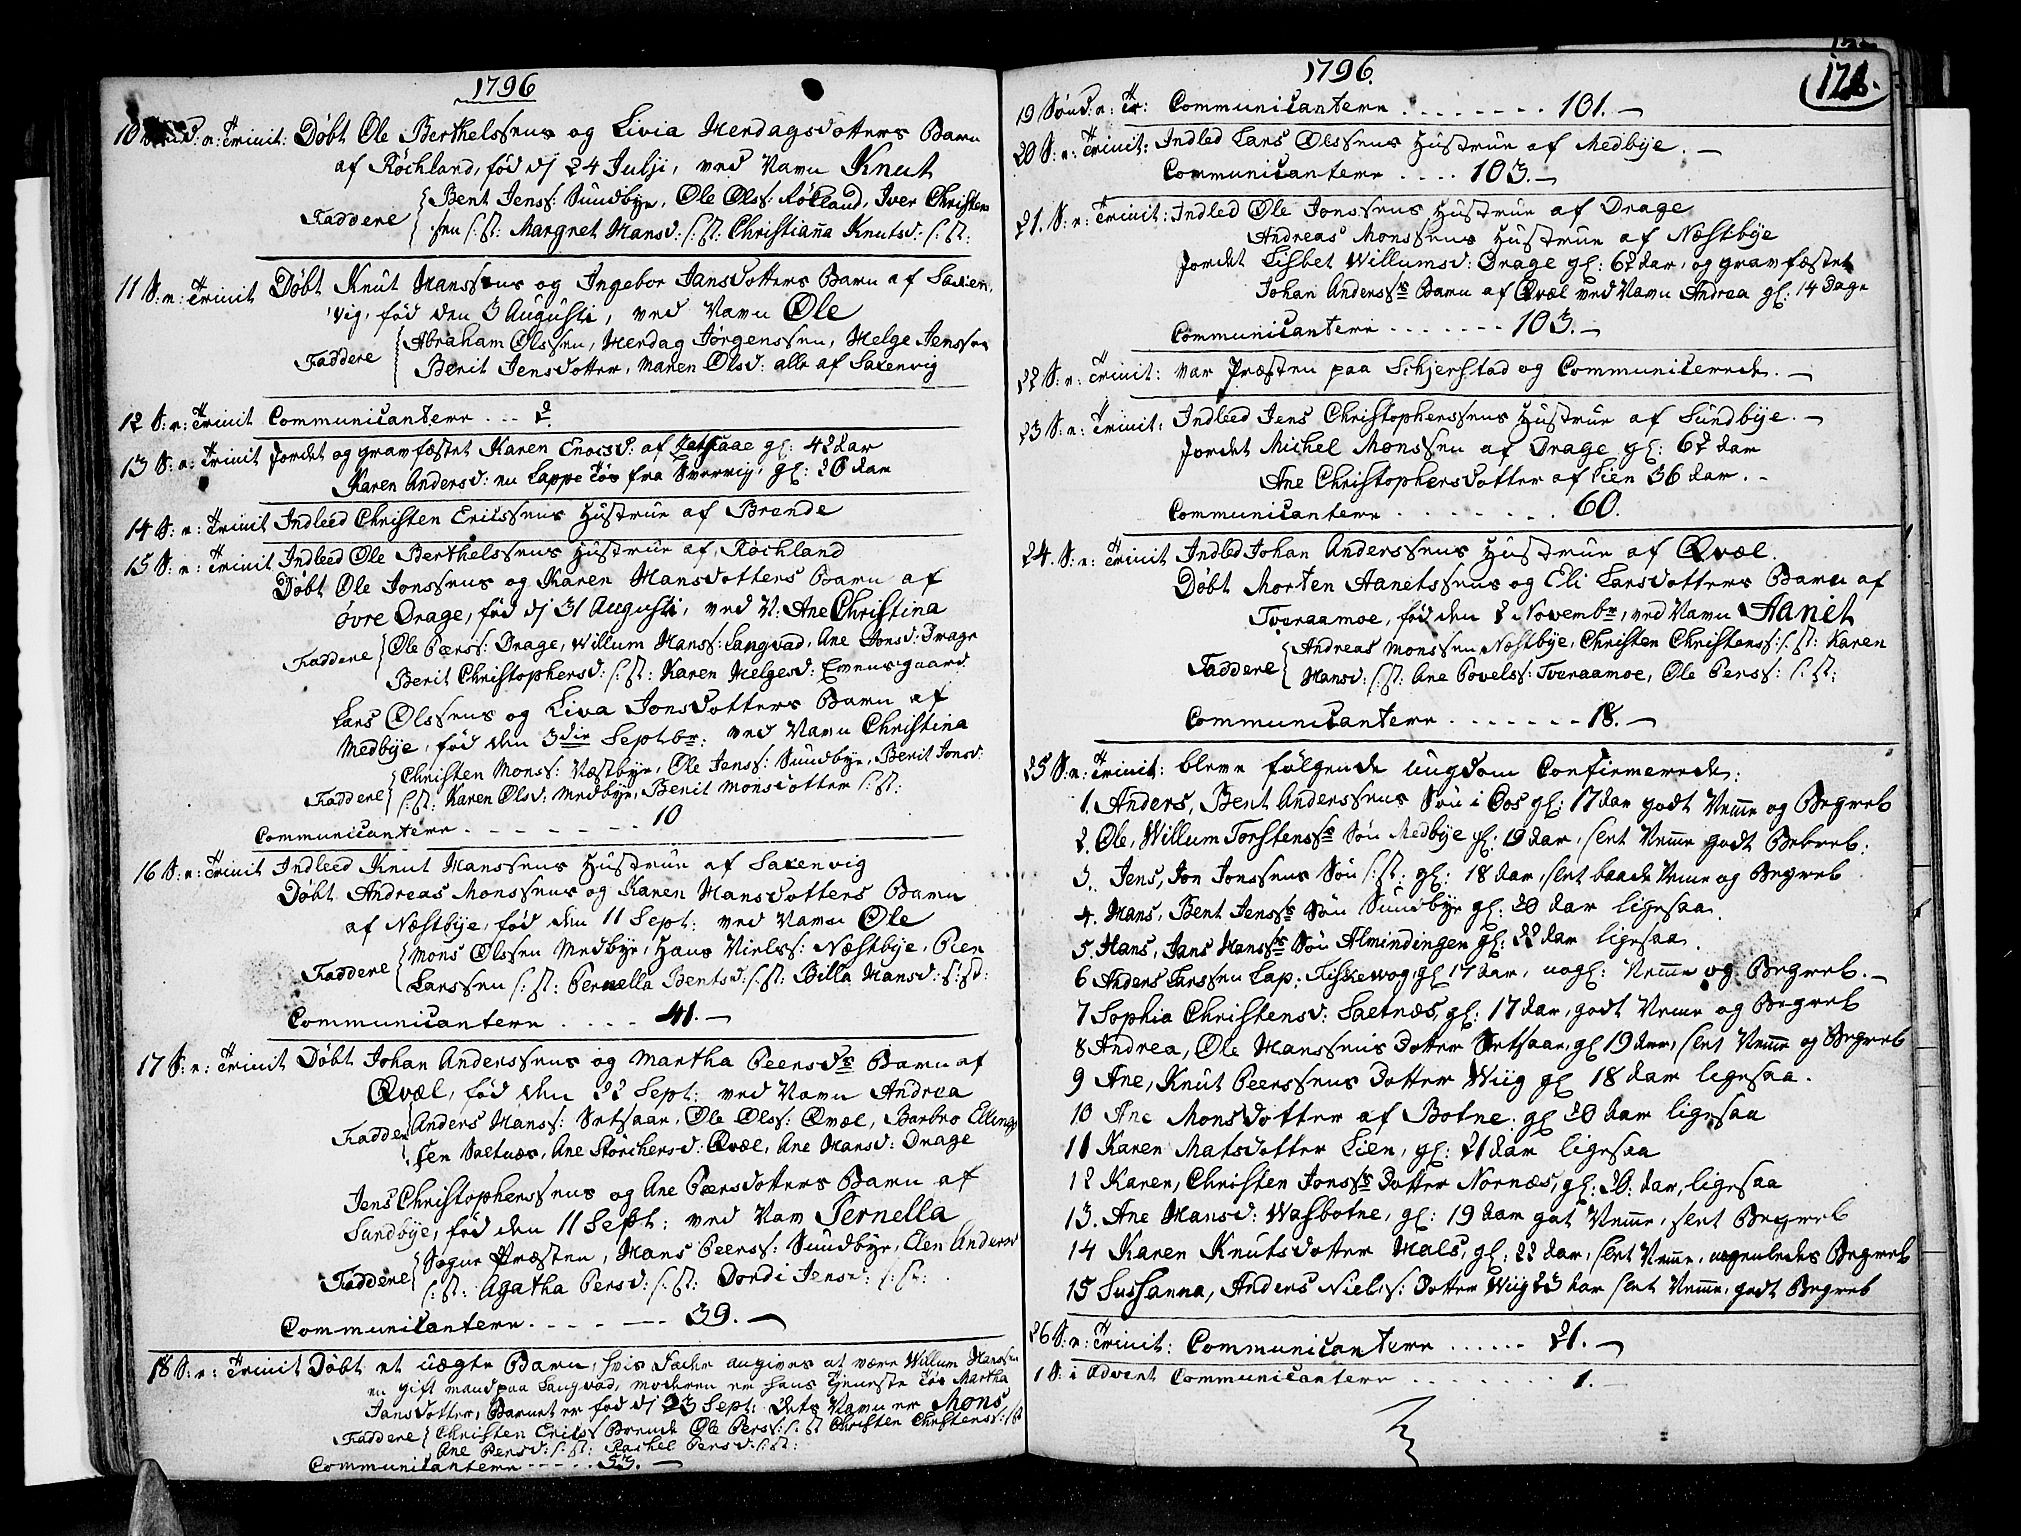 1796
10 Sønd: n: Trinit: Døbt Ole Berthelssens og Livia Herdagsdotters Barn
af Røchland, fød dj 24 Julji, ved Navn Knut
Faddere Bent Jenss: Sundbye, Ole Olss: Røkland, Iver Christen
sen s: st: Margret Hansd: s: st: Christiaña Knutsd: s: st:
11 S: n: Trinit Døbt Knut Hanssens og Ingebor Jansdotters Barn af Saxen
vig, fød den 3 Augusti, ved Navn Ole
Faddere Abraham Olssen, Herdag Jørgenssen, Helge Jenssen
Berit Jensdotter, Maren Olsd: alle af Saxenvig
12 S: n: Trinit Communicantere . . . 2
13 S: n: Trinit Jordet og gravfæstet Karen Enocsd: af gl: 42 Aar
Karen Andersd: en Lappe Tøs fra gl: 20 Aar
14 S: n: Trinit Indleed Christen Ericssens Hustrue af Brende
15 S: n: Trinit Indleed Ole Berthelssens Hustrue af Røchland
Døbt Ole Jonssens og Karen Hansdotters Barn af
øvre Drage, fød dj 31 Augusti, ved N: Ane Christina
Faddere Ole Pærss: Drage, Willum Hanss: Langvad, Ane Jonsd: Drage
Berit Christophersd: s: st: Karen Helgesd: Evensgaard
Lars Olssens og Liva Jonsdotters Barn af
Medbye, fød den 3die Septbr: ved Navn Christina
Faddere Christen Monss: Næstbye, Ole Jenss: Sundbye, Berit Jonsd:
s: st: Karen Olsd: Medbye, Berit Monsdotter s: st:
Communicantere . . . . . . . 10
16 S: n: Trinit Indleed Knut Hanssens Hustrue af Saxenvig
Døbt Andreas Monssens og Karen Hansdotters Barn
af Næstbye, fød den 11 Sept: ved Navn Ole
Faddere Mons Olssen Medbye, Hans Nielss: Næstbye, Pier
Larssen s: st: Pernella Bentsd: s: st: Billa Hansd: s: st:
Communicantere . . . . 41. —
17 S: n: Trinit Døbt Johan Anderssens og Martha Peersds Barn af
Qvæl, fød den 22 Sept: ved Navn Andrea
Fadder Anders Hanss: Setsaae, Ole Olss: Qvæl, Barbro Ellings
sen Saetnæs, Ane Størchersd: Qvæl, Ane Hansd: Drage
Jens Christopherssens og Ane Pærsdotters Barn af
Sundbye, fød den 11 Sept: ved Nav Pernella
Faddere Sogne Præsten, Hans Peerss: Sundbye, Elen Andersd
s: st: Agatha Persd: s: st: Dordi Jensd: s: st:
Communicantere . . . . . . . 39. —
18 S: n: Trinit Døbt et uægte Barn, hvis Fader angives at være Willum Hanssen
en gift mand paa Langvad, moderen er hans Tjeneste Tøs Martha
Jansdotter, Barnet er fød dj 23 Sept: dets Navn er Mons
Faddere Christen Ericss Brende Ole Perss: s: st Christen Christenss: s: st
Ane Persd: s: st: Rachel Persd: s: st:
Communicantere . . . . . 53. —
1796.
178.
19 Sønd: n: Tr: Communicantere . . . . . . . . 101. —
20 S: n: Trinit: Indled Lars Olssens Hustrue af Medbye. —
Communicantere . . . . 103. —
21. S: n: Trinit: Indled Ole Jonssens Hustrue af Drage
Andreas Monssens Hustrue af Næstbye
Jordet Lisbet Willumsd: Drage gl: 62 Aar, og gravfæstet
Johan Anderss Barn af Qvæl ved Navn Andrea gl: 14 Dage
Communicantere . . . . . . . 103. —
22 S: n: Trinit: var Præsten paa Schjerstad og Communicerede. —
23 S: n: Trinit: Indleed Jens Christopherssens Hustrue af Sundbye. —
Jordet Michel Monssen af Drage gl: 62 Aar
Ane Christophersdotter af Lien 36 Aar. -
Communicantere . . . . . . . . 60.
24. S: n: Trinit Indled Johan Anderssens Hustrue af Qvæl.
Døbt Morten Aanetssens og Eli Larsdotters Barn af
Tveraamoe, fød den 2 Novembr, ved Navn Aanet
Faddere Andreas Monssen Næstbye, Christen Christenss: s: st: Karen
Hansd: s: st: Ane Povelss: Tveraamoe, Ole Perss: s: st:
Communicantere . . . . . . . 18. —
25 S: n: Trinit: bleve følgende ungdom Confirmerede:
1. Anders, Bent Anderssens Søn i Oos gl: 17 Aar godt Nemme og Begreb
2. Ole, Willum Torstenss Søn Medbye gl: 19 Aar, slet Nemme godt Bebreb:
3. Jens, Jon Jonssens Søn s: st: gl: 18 Aar, slet baade Nemme og Begreb
4. Hans, Bent Jenss Søn Sundbye gl: 20 Aar ligesaa
5. Hans, Jans Hanss Søn Almindingen gl: 22 Aar ligesaa.
6 Anders Larssen Lap: Fiskevog gl 17 Aar, nogl: Nemme og Begreb. —
7 Sophia Christensd: Saetnæs, gl: 17 Aar, godt Neme og Begreb
8 Andrea, Ole Hanssens Dotter Setsaae, gl 19 Aar, slet Nemme og Begreb
9 Ane, Knut Peerssens Dotter Wiig gl 18 Aar ligesaa.
10 Ane Monsdotter af Botne gl 20 Aar ligesaa
11 Karen Matsdotter Lien, gl: 21 Aar ligesaa
12 Karen, Christen Jonss Dotter Nornæs, gl: 20: Aar, ligesaa
13. Ane Hansd: Wasbotne, gl: 19 Aar got Nemme, slet Begreb
14 Karen Knutsdotter Hals, gl: 22 Aar, slet Nemme, nogenledes Begreb
15 Susanna, Anders Nielss: Dotter Wiig 23 Aar slet Nemme, godt Begreb
26 S: n: Trinit: Communicantere . . . . . . 21. —
1 S: i Advent Communicantere . . . . . . . . . 1. —